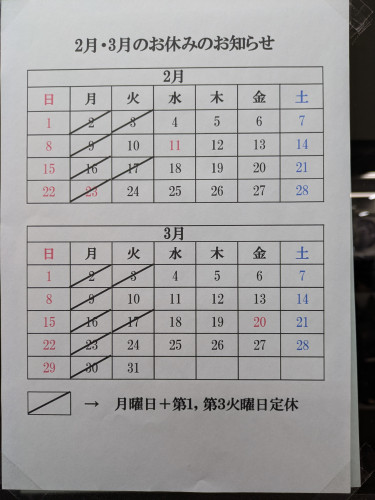 2月・3月のお休みのお知らせ
2月
日 月 火 水 木 金 土
1 2 3 4 5 6 7
8 9 10 11 12 13 14
15 16 17 18 19 20 21
22 23 24 25 26 27 28
3月
日 月 火 水 木 金 土
1 2 3 4 5 6 7
8 9 10 11 12 13 14
15 16 17 18 19 20 21
22 23 24 25 26 27 28
29 30 31
→ 月曜日＋第1,第3火曜日定休